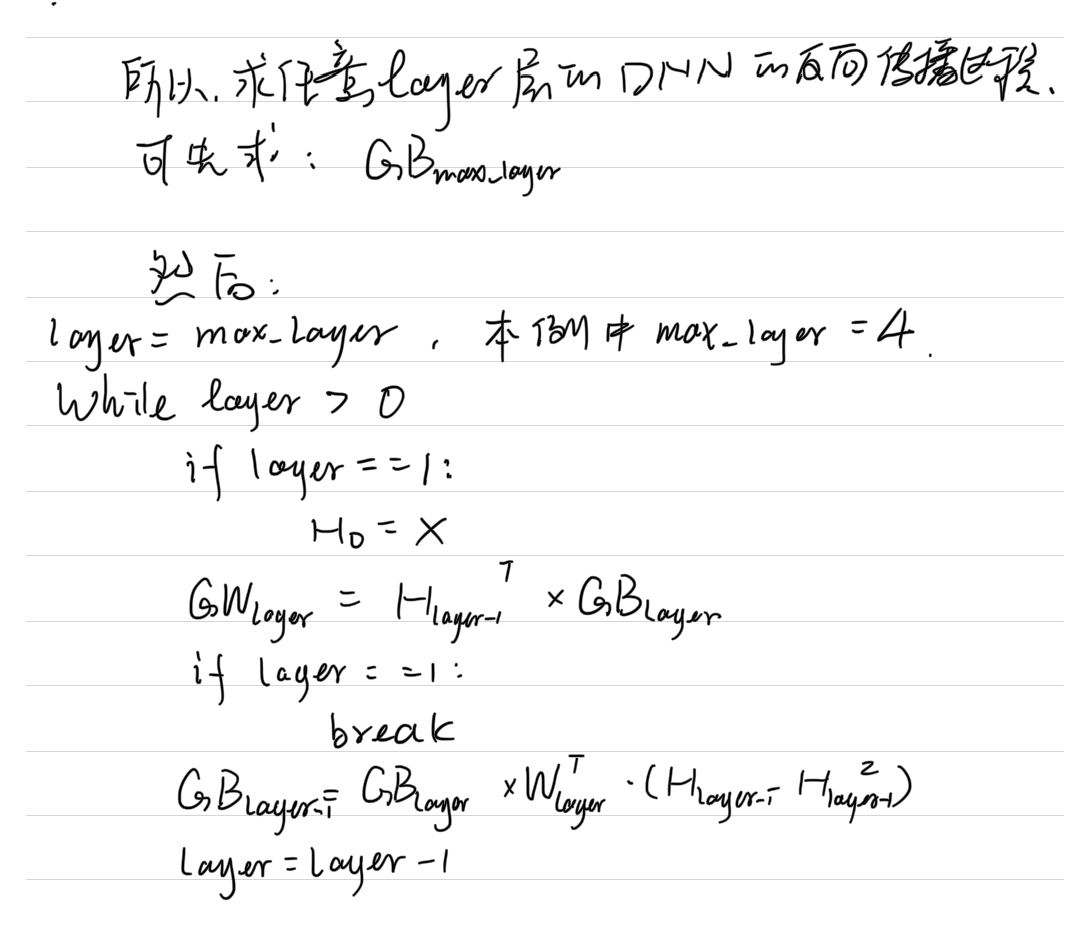 所以,求任意layer层的DNN的反向传播过程.
可先求: GB_max_layer
然后:
layer = max_layer , 本例中 max_layer = 4.
While layer > 0
if layer == 1:
H₀ = X
GW_layer = H_layer-1^T × GB_layer
if layer == 1:
break
GB_layer-1 = GB_layer × W_layer^T · (H_layer-1 - H_layer-1^2)
layer = layer - 1